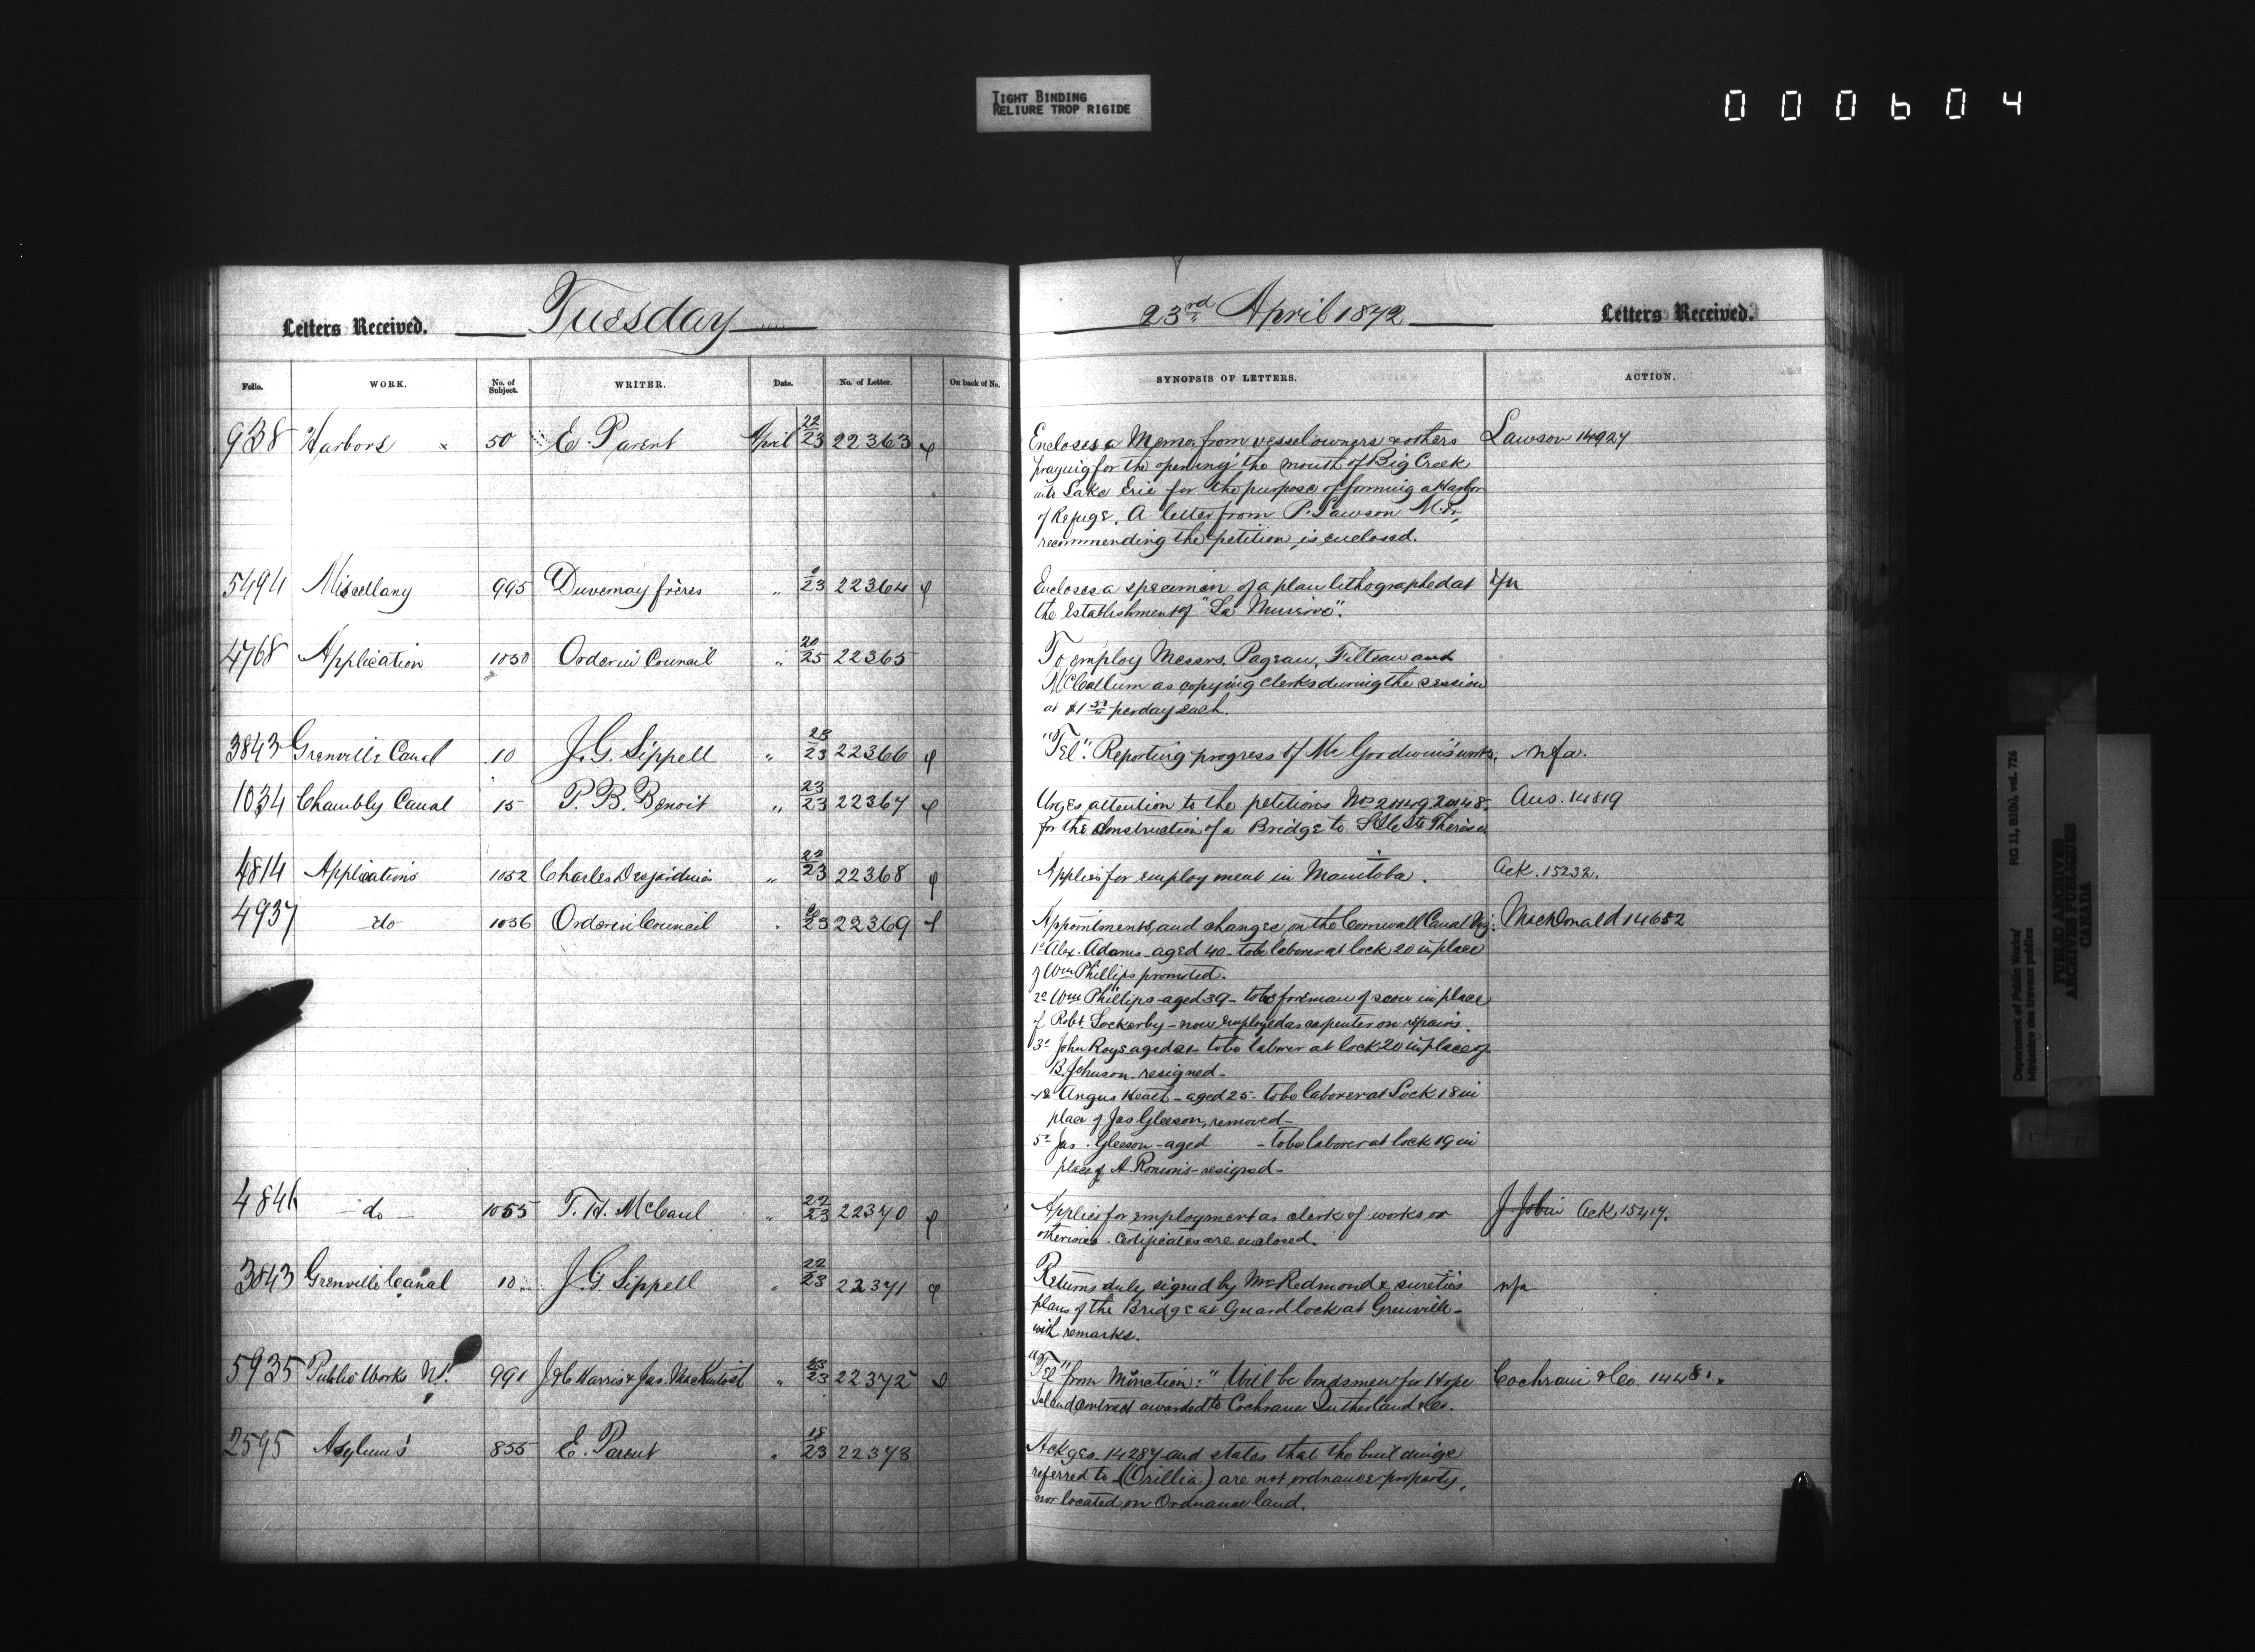 TIGHT BINDING
RELIURE TROP RIGIDE
000604
Letters Received. Tuesday
Folio. WORK. No. of Subject. WRITER. Date. No. of Letter. On back of No.
938 Harbors x 50 E. Parent April 22/23 22363
5494 Miscellany 995 Duvernay frères " /23 22364
4768 Application 1050 Order in Council " 20/25 22365
3843 Grenville Canal 10 J.G. Sippell " 23/23 22366
1034 Chambly Canal 15 P.B. Benoit " 23/23 22367
4814 Applications 1052 Charles Desjardins " 22/23 22368
4937 do 1056 Order in Council " /23 22369
4846 do 1055 T.H. McCaul " 22/23 22370
3843 Grenville Canal 10 J.G. Sippell " 22/23 22371
5935 Public Works 991 J & C Harris & Jas. MacKintosh " 23/23 22372
2595 Asylums 855 E. Parent " 18/23 22373
23rd April 1872 Letters Received.
SYNOPSIS OF LETTERS. ACTION.
Encloses a Memo. from vessel owners & others Lawson 14924
praying for the opening the mouth of Big Creek
into Lake Erie for the purpose of forming a Harbor
of Refuge. A letter from P. Lawson M.P.,
recommending the petition is enclosed.
Encloses a specimen of a plan lithographed at
the establishment of "La Minerve".
To employ Messrs. Pageau, Filteau and
McCallum as copying clerks during the session
at $1 50 per day each.
"Tel". Reporting progress of Mr Goodwin's works. nfa.
Urges attention to the petitions Nos 20149. 20148. Ans. 14819
for the construction of a Bridge to Isle Ste Thérèse.
Applies for employment in Manitoba. Ack. 15232.
Appointments, and changes, on the Cornwall Canal Viz: MacDonald 14652
1o Alex. Adams - aged 40 - to be laborer at lock 20 in place
of Wm Phillips promoted.
2o Wm Phillips - aged 39 - to be foreman of scow in place
of Robt. Lockerby - now employed as carpenter on repairs.
3o John Roys aged 21 - to be laborer at lock 20 in place of
B. Johnson - resigned -
4o Angus Heath - aged 25 - to be laborer at Lock 18 in
place of Jas Gleeson, removed -
5o Jas. Gleeson - aged - to be laborer at lock 19 in
place of A. - resigned -
Applies for employment as clerk of works or J. Jobin Ack 15417.
otherwise. Certificates are enclosed.
Returns duly signed by Mr Redmond & sureties nfa
plans of the Bridge at Guard lock at Grenville -
with remarks.
"Tel" from : "Will be bondsmen for Hope Cochrane & Co.
Island contract awarded to Cochrane Sutherland & Co.
Ackges. 14287 and states that the buildings
referred to (Orillia) are not ordnance property,
nor located on Ordnance land.
Department of Public Works/
Ministère des travaux publics
RG 11, B1(b), vol. 726
PUBLIC ARCHIVES
ARCHIVES PUBLIQUES
CANADA